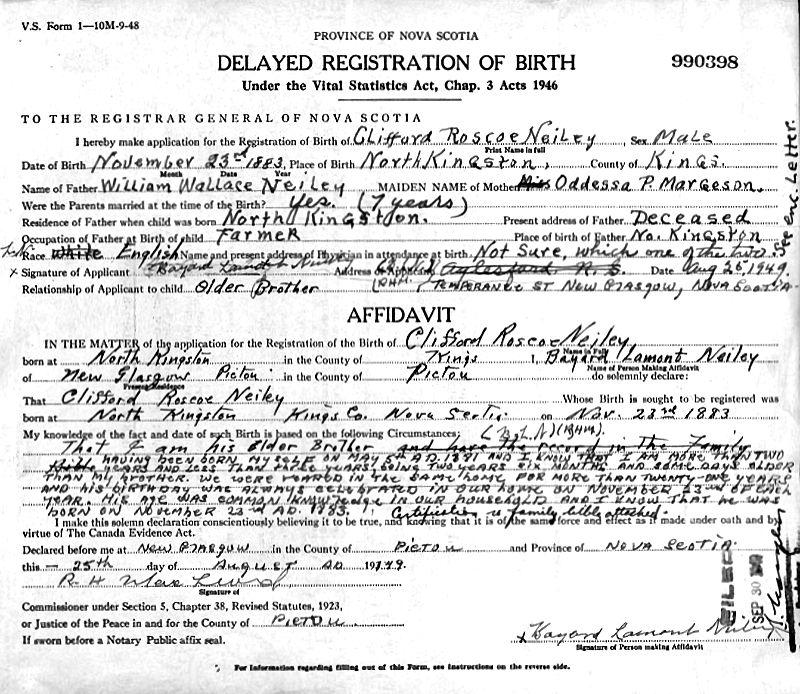 V.S. Form 1—10M-9-48
PROVINCE OF NOVA SCOTIA
DELAYED REGISTRATION OF BIRTH
990398
Under the Vital Statistics Act, Chap. 3 Acts 1946
TO THE REGISTRAR GENERAL OF NOVA SCOTIA
I hereby make application for the Registration of Birth of Clifford Roscoe Neiley, Sex Male
Print Name in full
Date of Birth November 23rd 1883, Place of Birth North Kingston, County of Kings
Month Date Year
Name of Father William Wallace Neiley MAIDEN NAME of Mother Miss Oddessa P. Margeson.
Were the Parents married at the time of the Birth? Yes. (7 years)
Residence of Father when child was born North Kingston. Present address of Father Deceased
Occupation of Father at Birth of child Farmer Place of birth of Father No. Kingston
Race White English Name and present address of Physician in attendance at birth Not Sure, which one of the two.
See enc. Letter.
x Signature of Applicant Bayard Lamont Neiley Address of Applicant Aylesford N.S. Date Aug 25, 1949
Relationship of Applicant to child Older Brother RHM. Temperance St New Glasgow, Nova Scotia
AFFIDAVIT
IN THE MATTER of the application for the Registration of the Birth of Clifford Roscoe Neiley
Name in Full
born at North Kingston in the County of Kings I, Bayard Lamont Neiley
Name of Person Making Affidavit
of New Glasgow Pictou in the County of Pictou do solemnly declare:
Present Residence
That Clifford Roscoe Neiley Whose Birth is sought to be registered was
born at North Kingston Kings Co. Nova Scotia on Nov. 23rd 1883
My knowledge of the fact and date of such Birth is based on the following Circumstances; (RHM)
That I am his older Brother and have the record in The Family
Bible having been born myself on May 5th AD. 1881 and I know that I am more than two
years and less than three years, being two years six months and some days older
than my brother. We were reared in the same home for more than twenty-one years
and his birthday was always celebrated in our home on November 23rd of each
year. His age was common knowledge in our household and I know that he was
born on November 23rd AD. 1883. Certification is family bible attached.
I make this solemn declaration conscientiously believing it to be true, and knowing that it is of the same force and effect as if made under oath and by
virtue of The Canada Evidence Act.
Declared before me at New Glasgow in the County of Pictou and Province of Nova Scotia.
this — 25th day of August AD 1949.
R. H.
Signature of
Commissioner under Section 5, Chapter 38, Revised Statutes, 1923,
or Justice of the Peace in and for the County of Pictou
If sworn before a Notary Public affix seal.
FILED
SEP 30
x Bayard Lamont Neiley
Signature of Person making Affidavit
For information regarding filling out of this Form, see instructions on the reverse side.